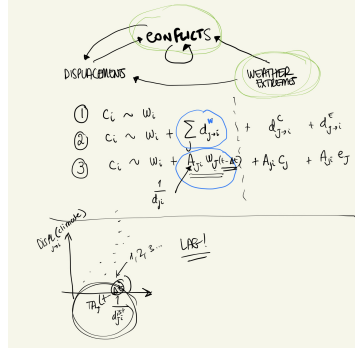 CONFLICTS
DISPLACEMENTS
WEATHER
EXTREMES
① c_i ~ w_i
② c_i ~ w_i + Σ_j d^w_{j→i} + d^c_{j→i} + d^E_{j→i}
③ c_i ~ w_i + A_{ji} w_j(t-Δt) + A_{ji} c_j + A_{ji} e_j
1/d_{ji}
DISPL(climate)
j→i
1, 2, 3...
LAG!